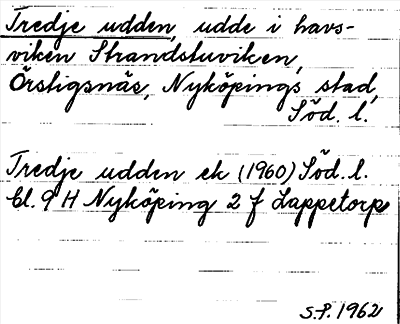 Tredje udden, udde i havs-
viken Strandstuviken,
Örstigsnäs, Nyköpings stad,
Söd. l.
Tredje udden ek (1960) Söd. l.
bl. 9 H Nyköping 2 f Lappetorp
S.P. 1962